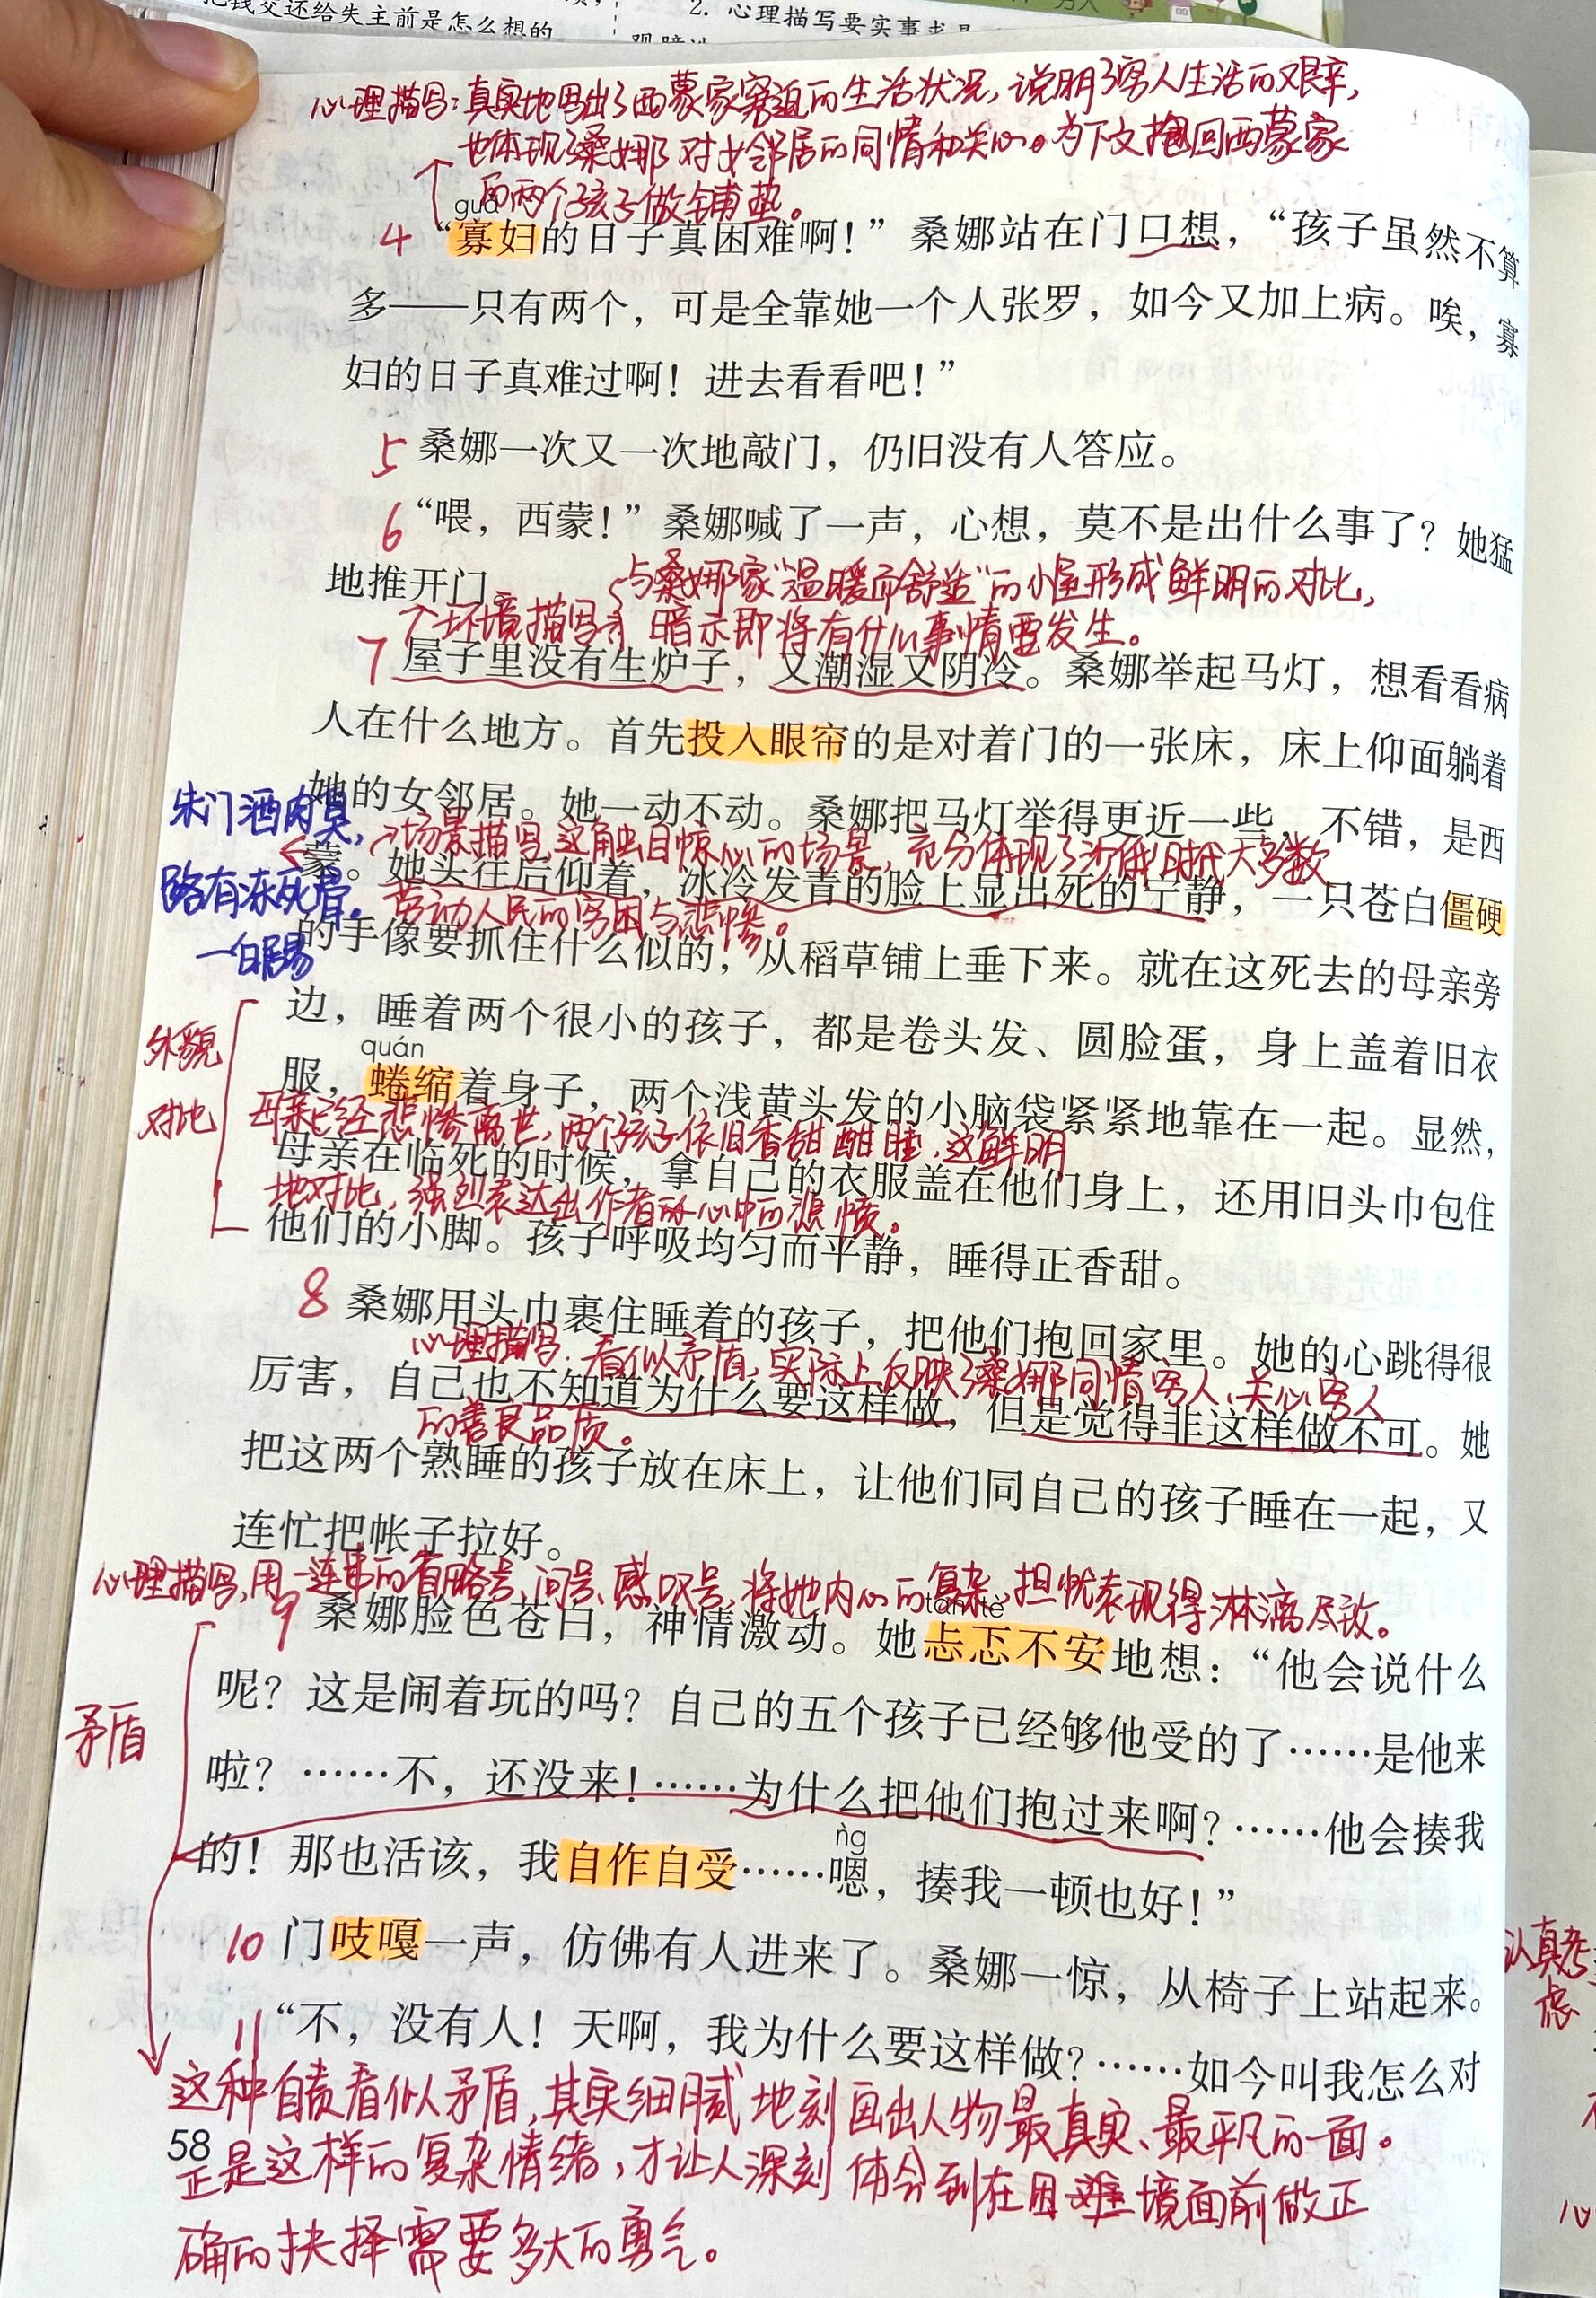 把钱交还给失主前是怎么想的
2. 心理描写要实事求是
心理描写：真实地写出了西蒙家窘迫的生活状况，说明了穷人生活的艰辛，
也体现了桑娜对女邻居的同情和关心。为下文抱回西蒙家
的两个孩子做铺垫。
guǎ
4 “寡妇的日子真困难啊！”桑娜站在门口想，“孩子虽然不算
多——只有两个，可是全靠她一个人张罗，如今又加上病。唉，寡
妇的日子真难过啊！进去看看吧！”
5 桑娜一次又一次地敲门，仍旧没有人答应。
6 “喂，西蒙！”桑娜喊了一声，心想，莫不是出什么事了？她猛
地推开门。
与桑娜家“温暖而舒适”的小屋形成鲜明的对比，
环境描写 暗示即将有什么事情要发生。
7 屋子里没有生炉子，又潮湿又阴冷。桑娜举起马灯，想看看病
人在什么地方。首先投入眼帘的是对着门的一张床，床上仰面躺着
她的女邻居。她一动不动。桑娜把马灯举得更近一些，不错，是西
朱门酒肉臭，
场景描写，这触目惊心的场景，充分体现了沙俄时代大多数
蒙。她头往后仰着，冰冷发青的脸上显出死的宁静，一只苍白僵硬
路有冻死骨。
劳动人民的穷困与悲惨。
的手像要抓住什么似的，从稻草铺上垂下来。就在这死去的母亲旁
一白居易
边，睡着两个很小的孩子，都是卷头发、圆脸蛋，身上盖着旧衣
外貌
quán
服，蜷缩着身子，两个浅黄头发的小脑袋紧紧地靠在一起。显然，
对比
母亲已经悲惨离世，两个孩子依旧香甜酣睡，这鲜明
母亲在临死的时候，拿自己的衣服盖在他们身上，还用旧头巾包住
地对比，强烈表达出作者的心中的悲愤。
他们的小脚。孩子呼吸均匀而平静，睡得正香甜。
8 桑娜用头巾裹住睡着的孩子，把他们抱回家里。她的心跳得很
心理描写．看似矛盾，实际上反映了桑娜同情穷人、关心穷人
厉害，自己也不知道为什么要这样做，但是觉得非这样做不可。她
的善良品质。
把这两个熟睡的孩子放在床上，让他们同自己的孩子睡在一起，又
连忙把帐子拉好。
心理描写，用一连串的省略号、问号、感叹号，将她内心的复杂、担忧表现得淋漓尽致。
tǎn tè
9 桑娜脸色苍白，神情激动。她忐忑不安地想：“他会说什么
呢？这是闹着玩的吗？自己的五个孩子已经够他受的了……是他来
矛盾
啦？……不，还没来！……为什么把他们抱过来啊？……他会揍我
ǹg
的！那也活该，我自作自受……嗯，揍我一顿也好！”
10 门吱嘎一声，仿佛有人进来了。桑娜一惊，从椅子上站起来。
11 “不，没有人！天啊，我为什么要这样做？……如今叫我怎么对
这种自责看似矛盾，其实细腻地刻画出人物最真实、最平凡的一面。
58
正是这样的复杂情绪，才让人深刻体会到在困难境面前做正
确的抉择需要多大的勇气。
认真考
虑
心